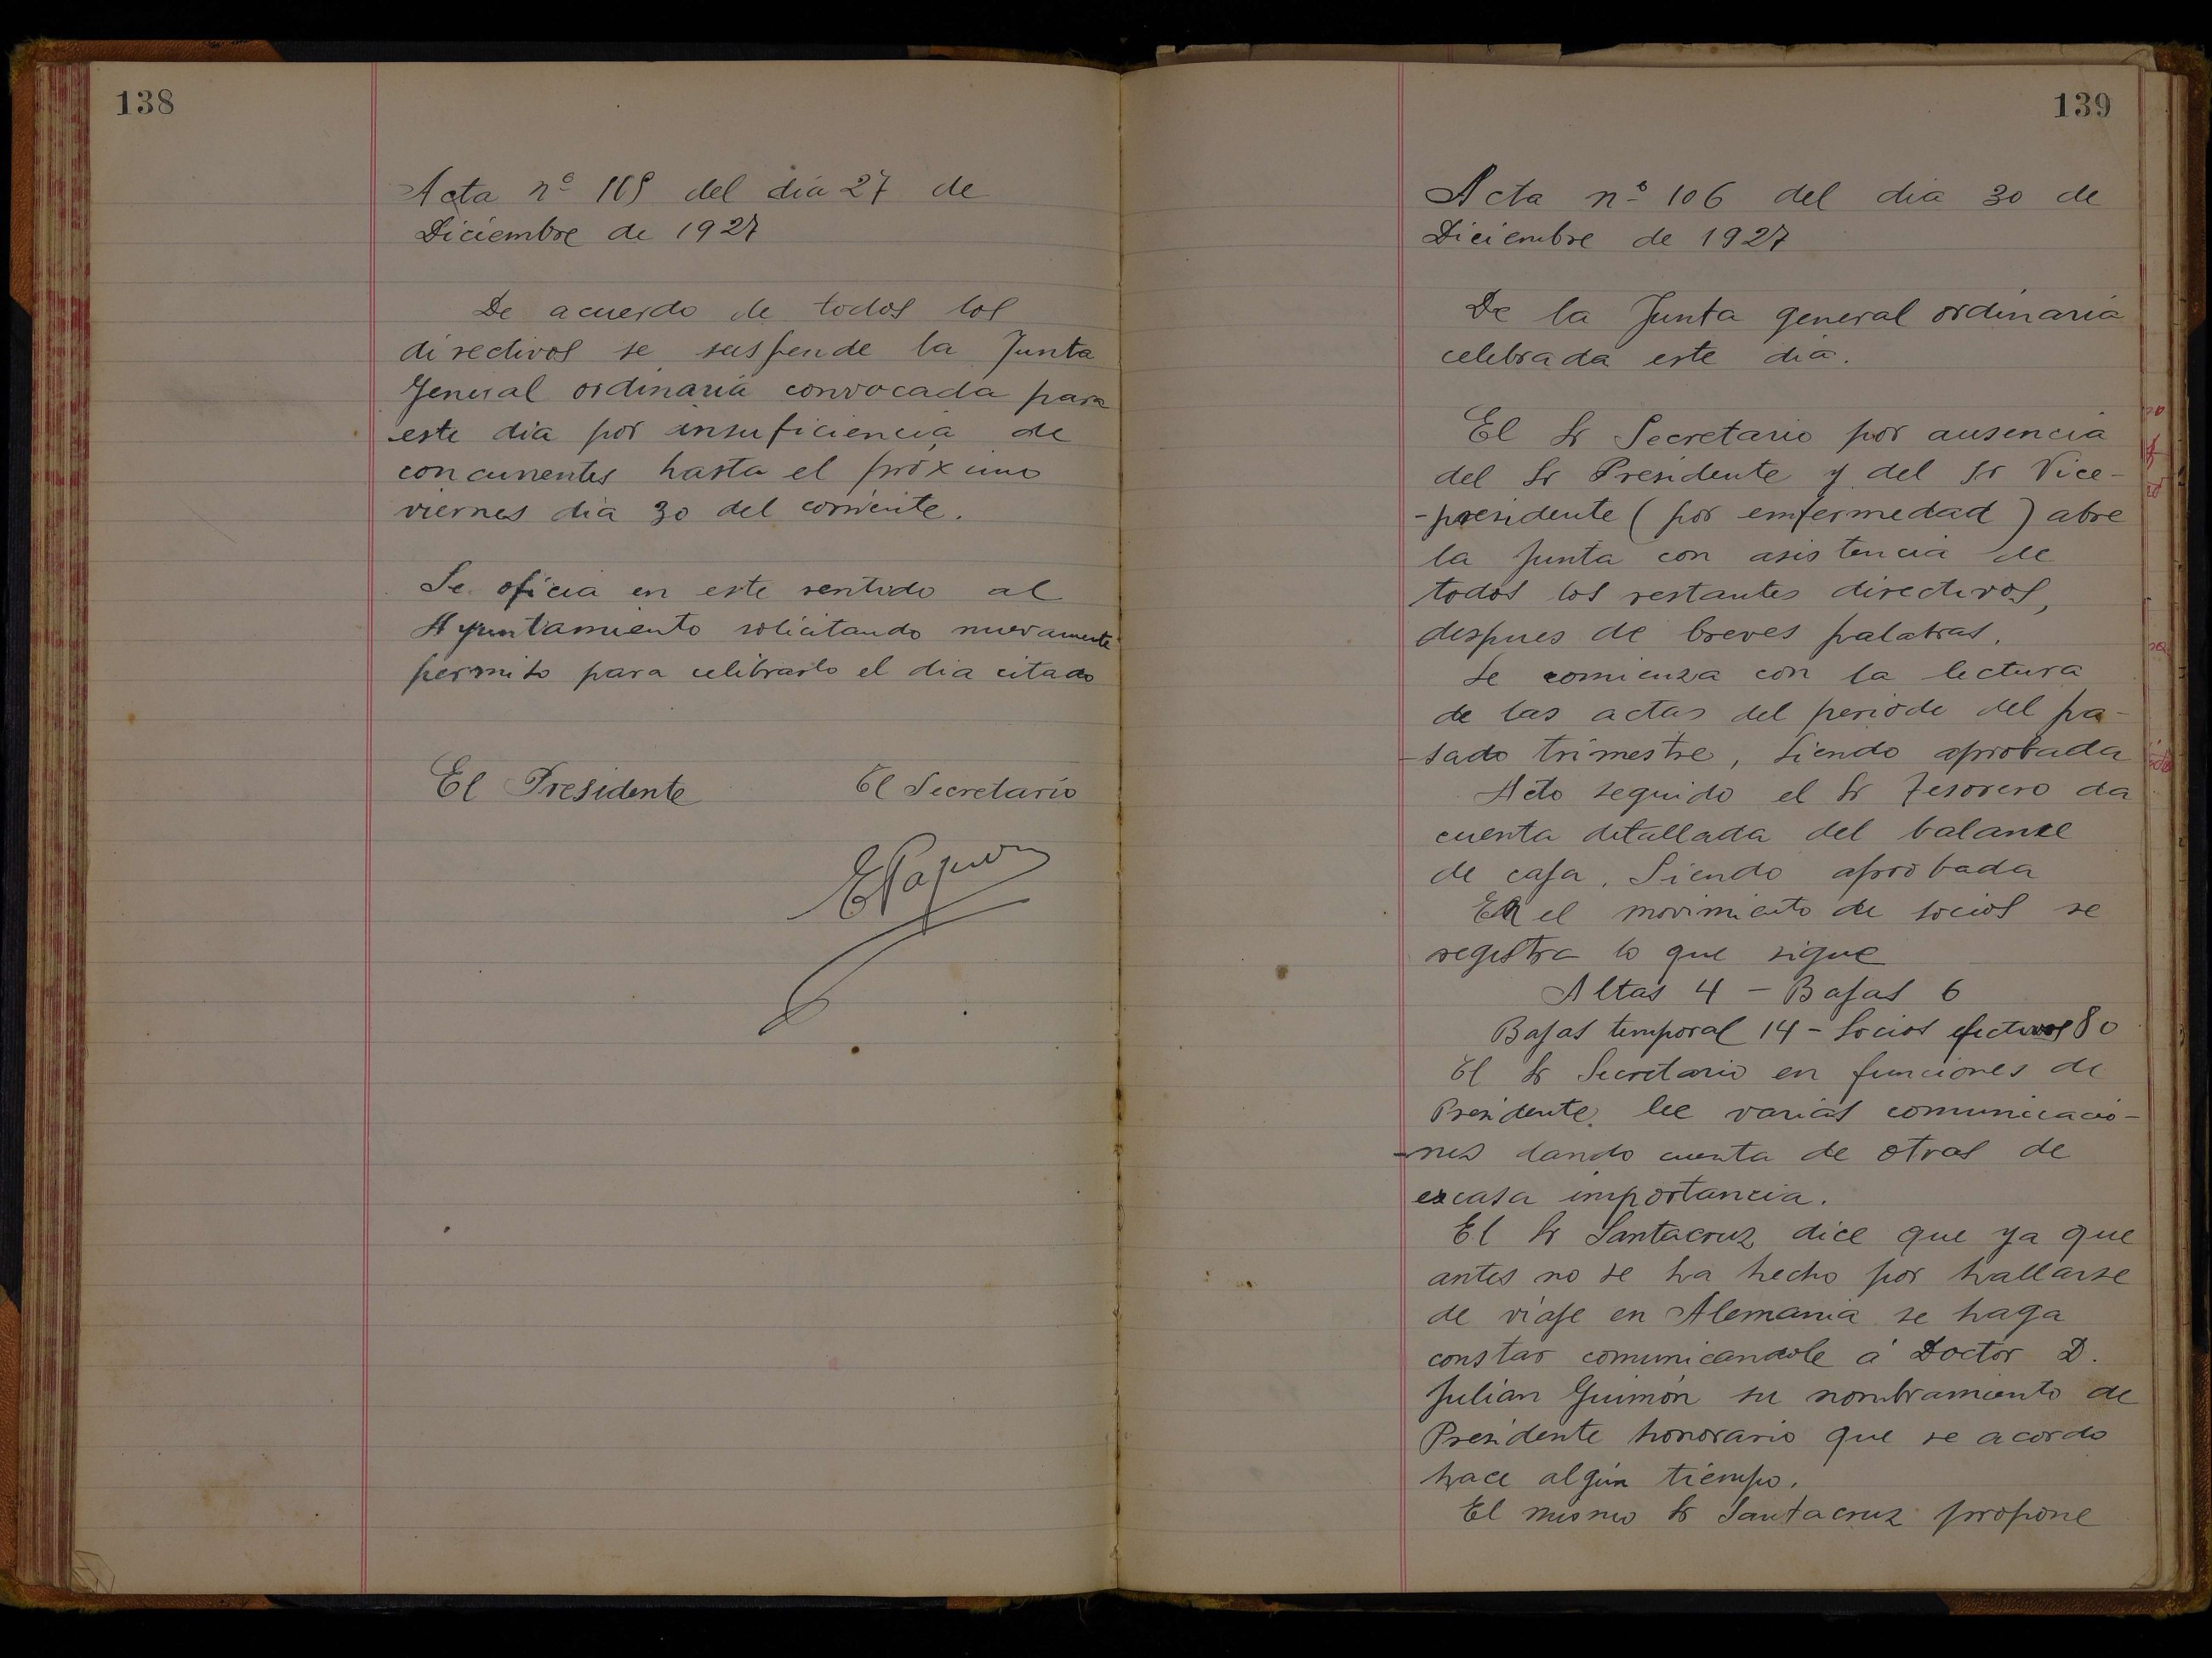 138
Acta nº 105 del dia 27 de
Diciembre de 1927
De acuerdo de todos los
directivos se suspende la Junta
General ordinaria convocada para
este dia por insuficiencia de
concurrentes hasta el próximo
viernes dia 30 del corriente.
Se oficia en este sentido al
Ayuntamiento solicitando nuevamente
permiso para celebrarlo el dia citado
El Presidente El Secretario
139
Acta nº 106 del dia 30 de
Diciembre de 1927
De la Junta general ordinaria
celebrada este dia.
El Sr Secretario por ausencia
del Sr Presidente y del Sr Vice-
-presidente (por emfermedad) abre
la Junta con asistencia de
todos los restantes directivos,
despues de breves palabras.
Se comienza con la lectura
de las actas del periodo del pa-
-sado trimestre, siendo aprobada
Acto seguido el Sr Tesorero da
cuenta detallada del balance
de caja. Siendo aprobada
En el movimiento de socios se
registra lo que sigue
Altas 4 - Bajas 6
Bajas temporal 14 - Socios efectivos 80
El Sr Secretario en funciones de
Presidente, lee varias comunicacio-
-nes dando cuenta de otras de
escasa importancia.
El Sr Santacruz dice que ya que
antes no se ha hecho por hallarse
de viaje en Alemania se haga
constar comunicandole á Doctor D.
Julian Guimón su nombramiento de
Presidente honorario que se acordo
hace algún tiempo.
El mismo Sr Santacruz propone